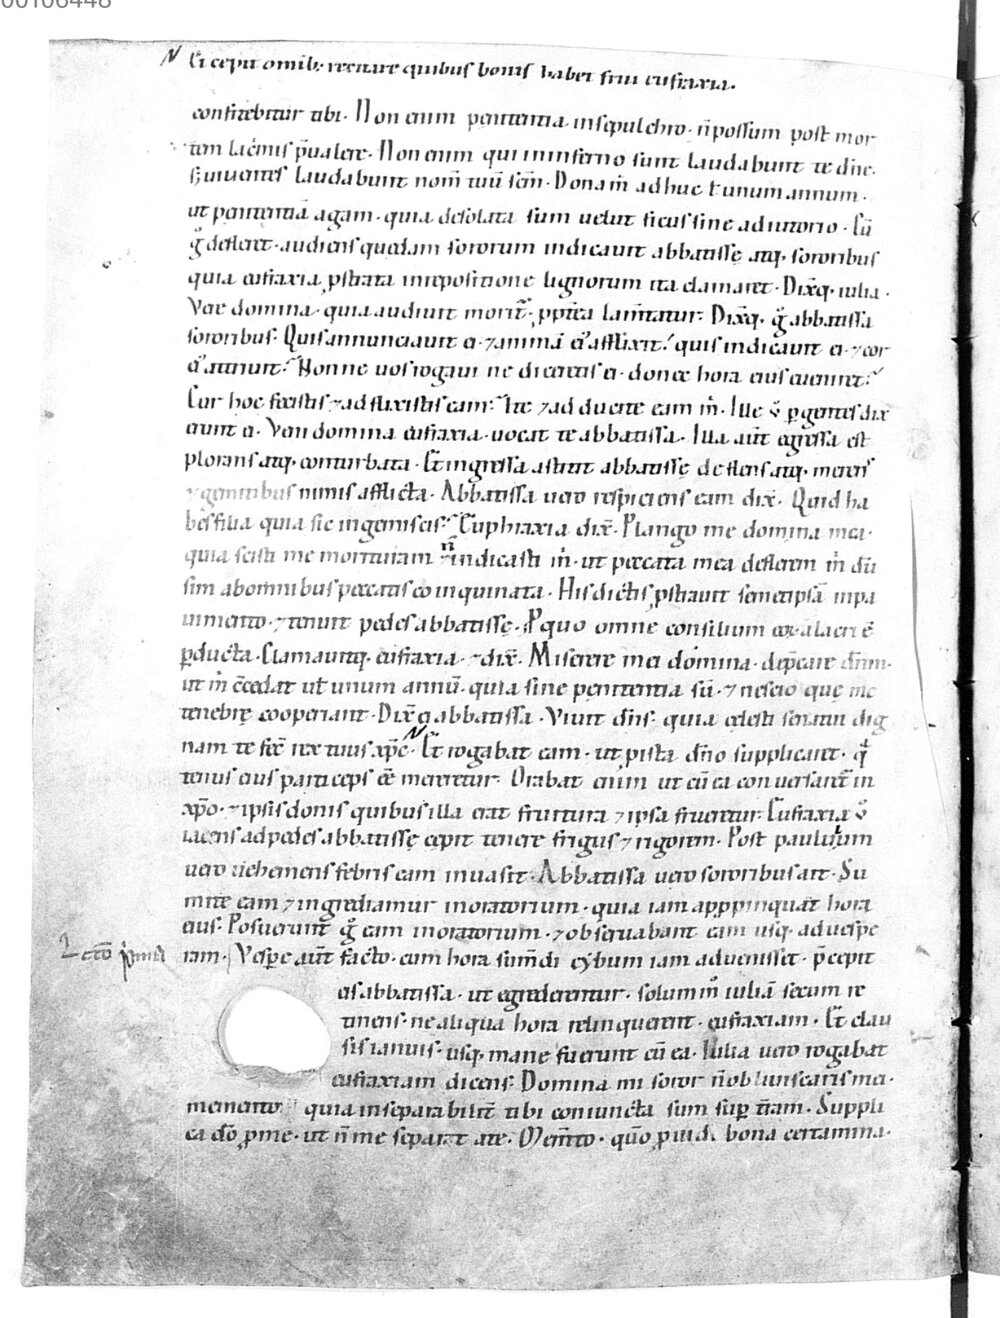 00106448
Et cepit omib; recitare quibus bonis habet frui eufraxia.
confitebitur tibi. Non enim penitentia in sepulchro. n̄ possum post mor
tem lac̄mis p̄ualere. Non enim qui in inferno sunt laudabunt te dn̄e.
s; uiuentes laudabunt nom̄ tuū sc̄m. Dona m̄ adhuc ł unum annum.
ut penitentiā agam. quia desolata sum uelut ficus sine adiutorio. Cū
g̊ defleret. audiens quedam sororum indicauit abbatissę atq; sororibus
quia eufraxia ꝓstrata in repositione lignorum ita clamaret. Dix̄q; iulia.
Vae domina. quia audiuit morit᷑. ꝓpt̄ea lam̄tatur. Dix̄q; g̊ abbatissa
sororibus. Quis annunciauit ei. ⁊ animā ei᷒ afflixit? quis indicauit ei. ⁊ cor
ei᷒ attriuit? Nonne uos rogaui ne diceretis ei. donec hora eius eueniret?
Cur hoc fecistis ⁊ adflixistis eam? Ite ⁊ adducite eam m̄. Ille v̊ ꝑgentes dix
erunt ei. Veni domina eufraxia. uocat te abbatissa. Illa aut̄ egressa est
plorans atq; conturbata. Et ingressa astitit abbatissę deflens atq; merens
⁊ gemitibus nimis afflicta. Abbatissa uero respiciens eam dix̄. Quid ha
bes filia quia sic ingemiscis? Euphraxia dix̄. Plango me domina mea.
quia scisti me morituram ⁊ n̄ indicasti m̄. ut peccata mea deflerem m̄ dū
sim abominibus peccatis coinquinata. His dictis ꝓstrauit semetipsā in pa
uimento. ⁊ tenuit pedes abbatissę.
ꝑducta. Clamauitq; eufraxia. ⁊ dix̄. Miserere mei domina. dep̄care dn̄m.
ut m̄ c̄cedat ut ł unum annū. quia sine penitentia sū. ⁊ nescio quę me
tenebrę cooperiant. Dix̄ g̊ abbatissa. Viuit dn̄s. quia celesti senatui dig
nam te fec̄ rex tuus xp̄c. Et rogabat eam. ut p̄ ista dn̄o supplicaret. q̄
tenus eius particeps ēē meretur. Orabat enim ut cū ea conuersaret᷑ in
xp̄o. ⁊ ipsis donis quibus illa erat fruitura ⁊ ipsa frueretur. Eufraxia v̊
iacens ad pedes abbatissę cepit tenere frigus ⁊ rigorem. Post paululum
uero uehemens febris eam inuasit. Abbatissa uero sororibus ait. Su
mite eam ⁊ ingrediamur in oratorium. quia iam appropinquat hora
eius. Posuerunt g̊ eam in oratorium. ⁊ obseruabant eam usq; ad uespe
ram. Vespe aut̄ facto. cum hora sum̄di cybum iam aduenisset. p̄cepit
eis abbatissa. ut egrederentur. solum m̊ iuliā secum re
tinens. ne aliqua hora relinquerent. eufraxiam. Et clau
sis ianuis. usq; mane fuerunt cū ea. Iulia uero rogabat
eufraxiam dicens. Domina mi soror n̄ obliuiscaris mei.
memento quia inseparabilit̄ tibi coniuncta sum suꝑ t̄ram. Suppli
ca dō ꝓ me. ut n̄ me separet a te. Mem̄to. quō ꝓuidi bona certamina.